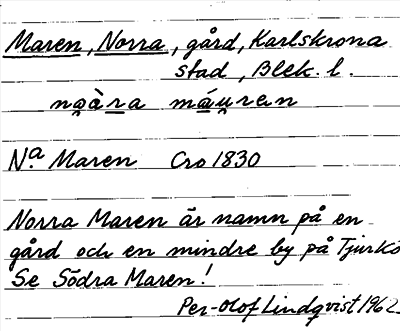 Maren, Norra, gård, Karlskrona
stad, Blek. l.
nåra måuren
Nª Maren Cro 1830
Norra Maren är namn på en
gård och en mindre by på Tjurkö
Se Södra Maren!
Per-Olof Lindqvist 1962